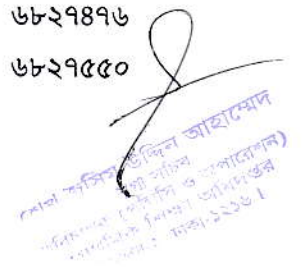 ৬৮২৭৪৭৬
৬৮২৭৫৫০
শেখ জসিম উদ্দিন আহাম্মেদ
সচিব
ও অপারেশন)
প্রাথমিক শিক্ষা অধিদপ্তর
ঢাকা-১২১৬।